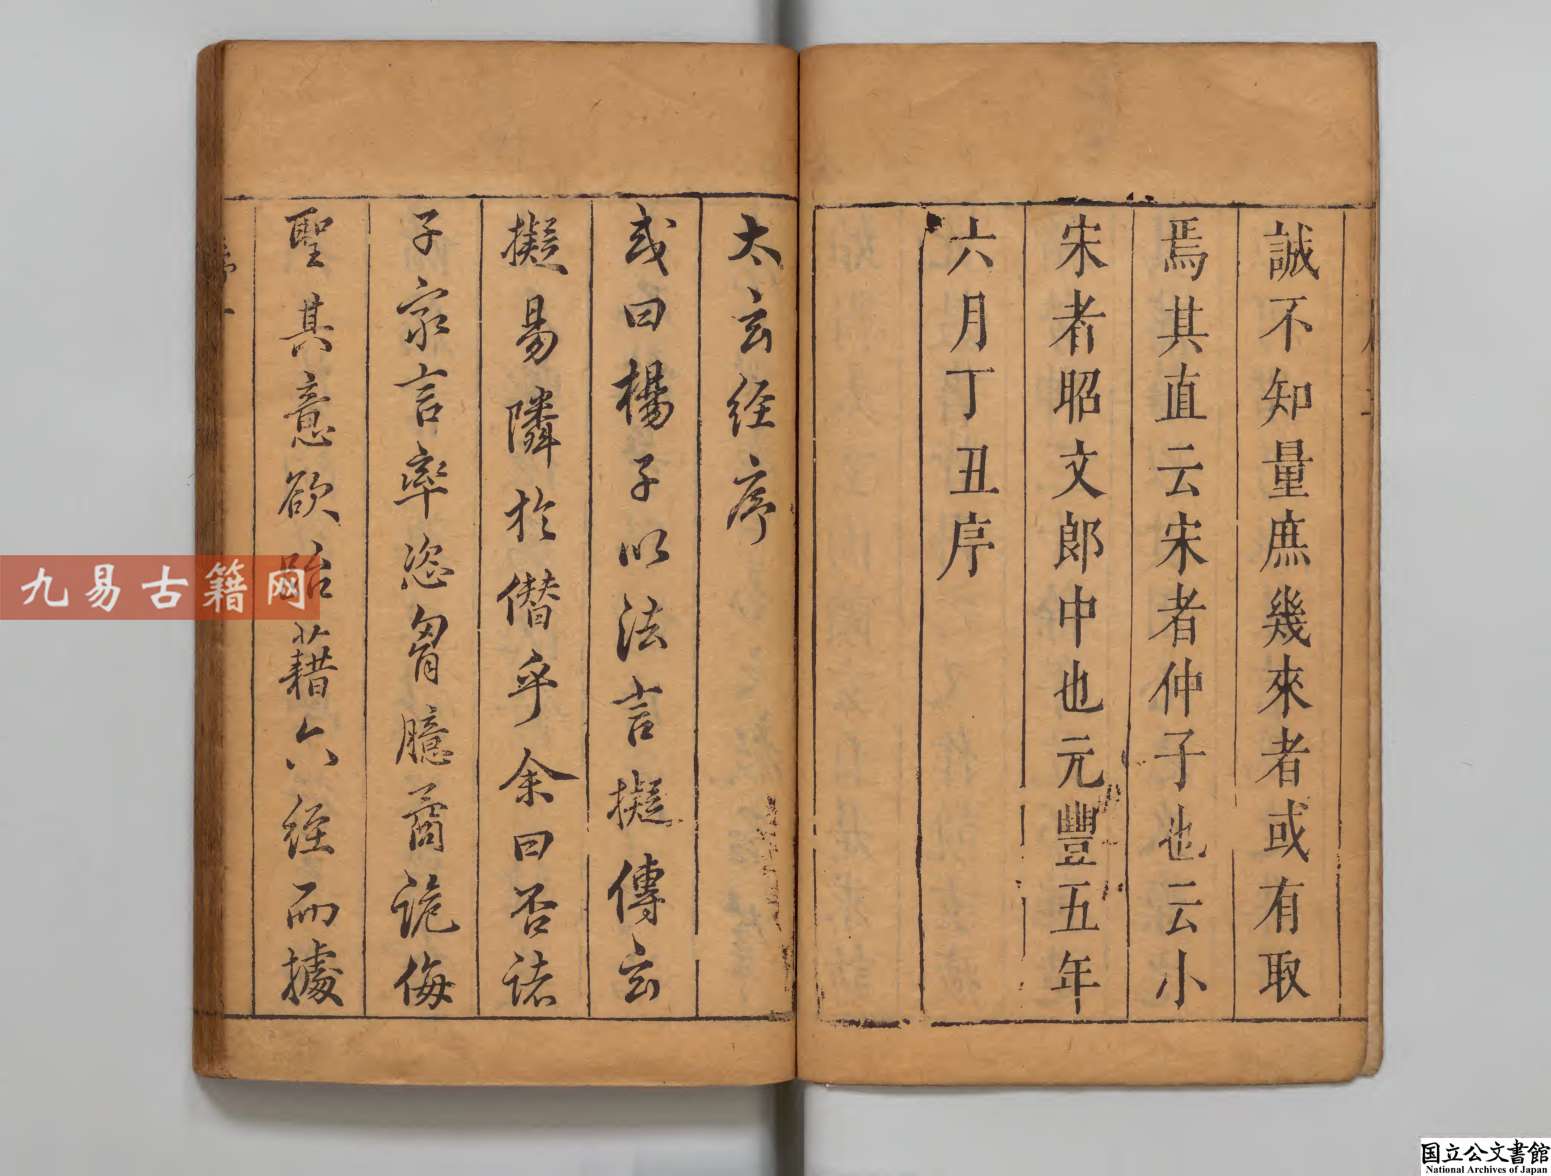 誠不知量庶幾來者或有取
焉其直云宋者仲子也云小
宋者昭文郎中也元豐五年
六月丁丑序
太玄經序
或曰楊子以法言擬傳玄
擬易隣於僭乎余曰否諸
子家言率恣胷臆著詭侮
聖其意欲跆藉六經而據
九易古籍网
国立公文書館
National Archives of Japan